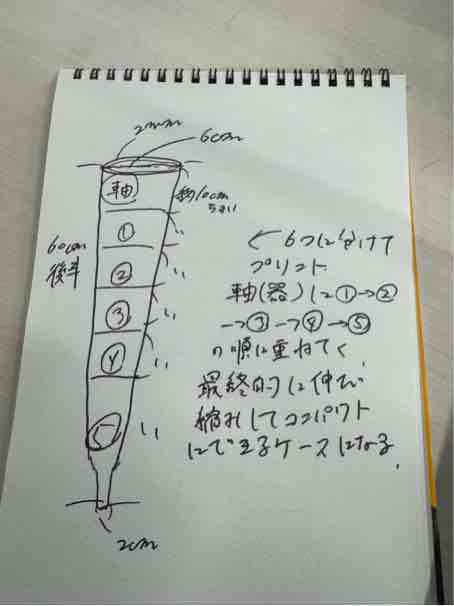 2mm
6cm
軸
約10cm
ちょい
①
60cm
後半
②
③
④
⑤
2cm
←6つに分けて
プリント
軸(器)に①→②
→③→④→⑤
の順に重ねてく
最終的に伸び
縮みしてコンパクト
にできるケースになる